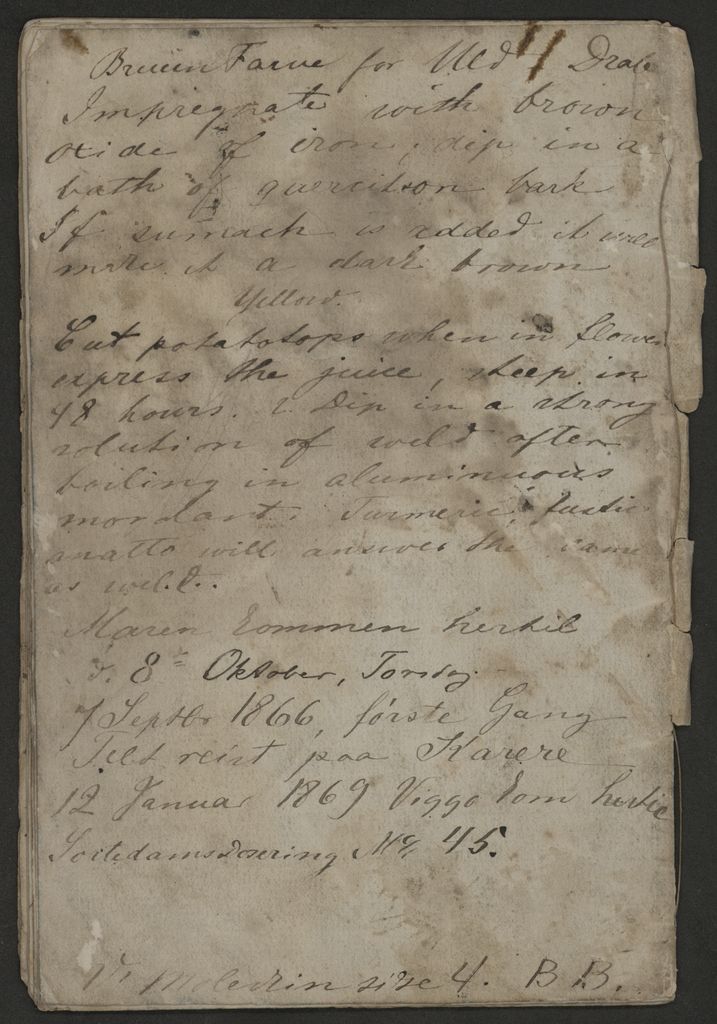 Bruun Farve for Uld
Impregnate with brown
oxide of iron, dip in a
bath of quercitson bark
If sumach is added it will
make it a dark brown
Yellow.
Cut potatotops when in flower
express the juice, steep in
48 hours. & Dip in a strong
solution of weld after
boiling in aluminuous
mordant. Turmeric, fustic
anatto will answer the same
as weld.
Maren kommen hertil
d. 8 Oktober, Torsdag
7 Septbr 1866, förste Gang
Telt reist paa Karere
12 Januar 1869 Viggo kom hertil
Sortedamsdosering No 45.
size 4. B B.